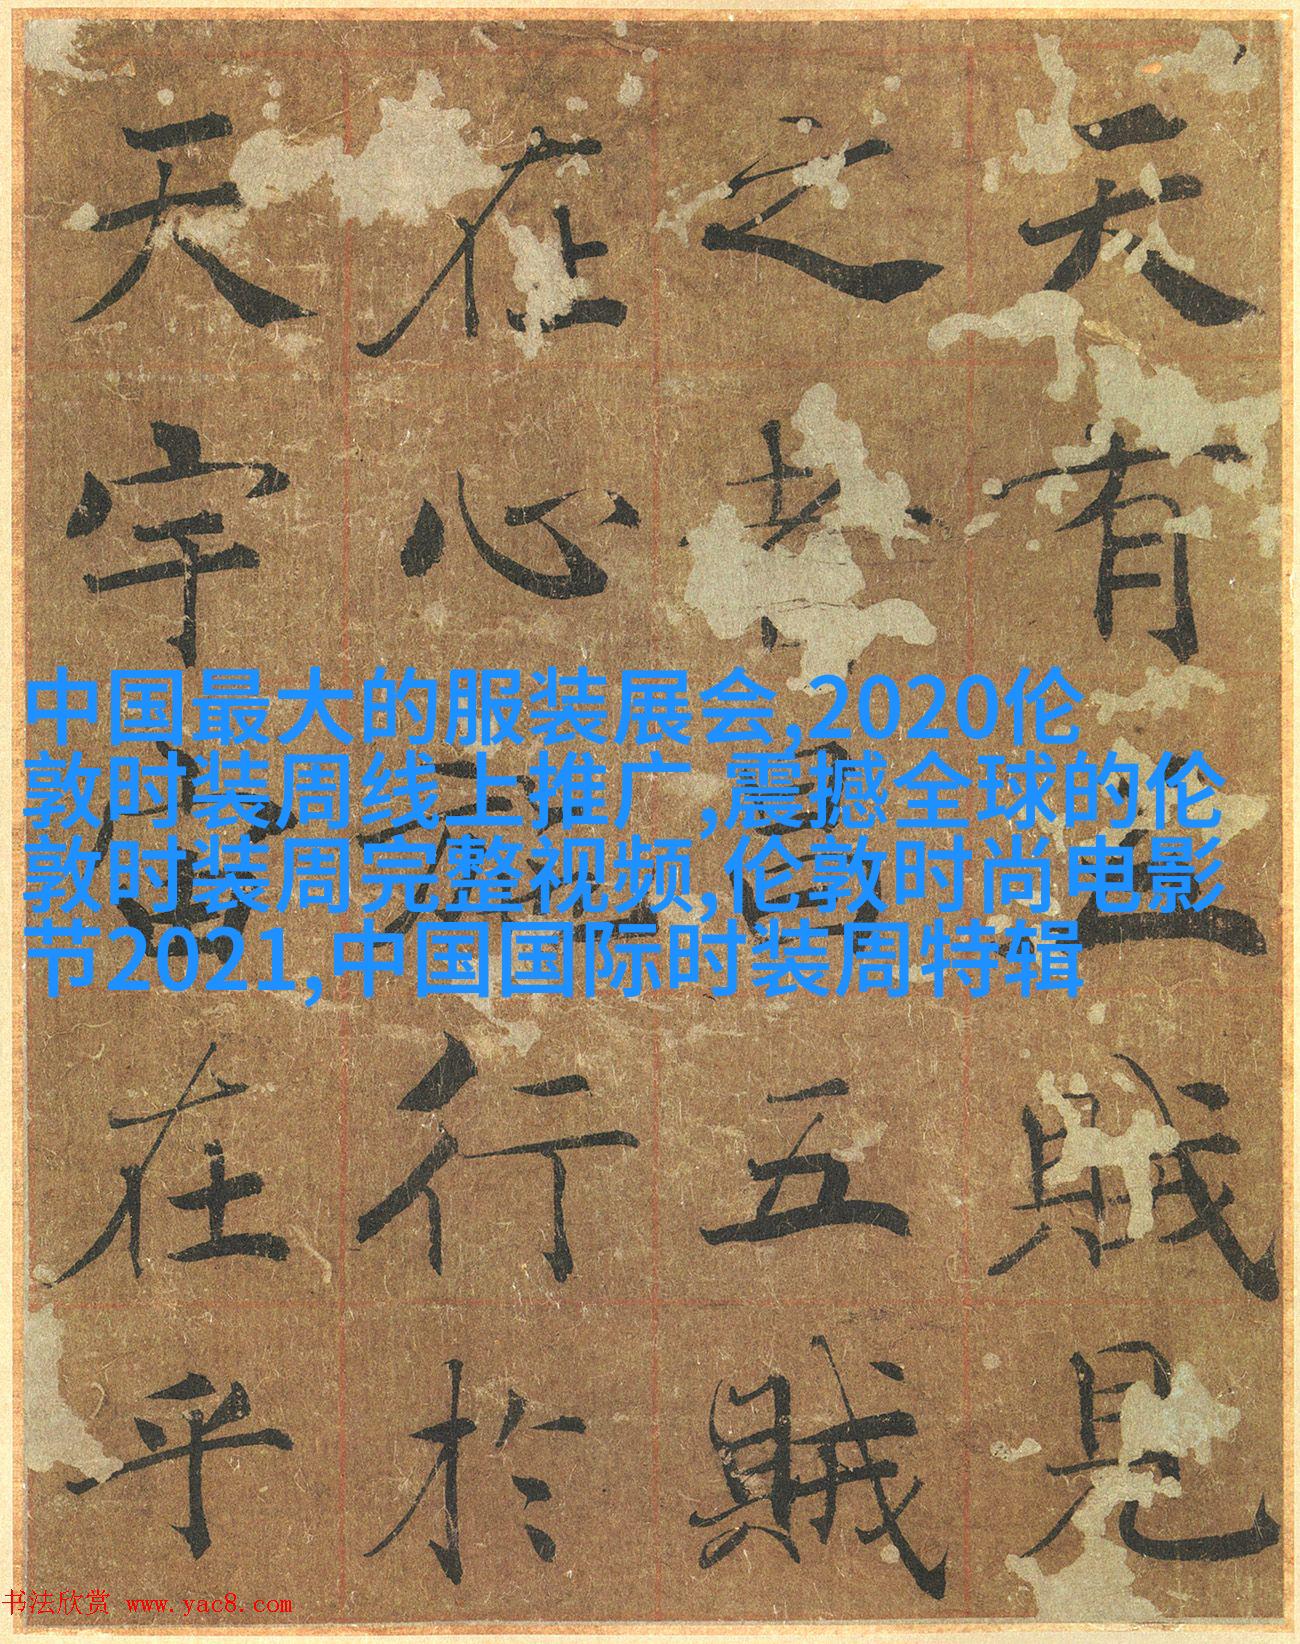 天有五賊見
之者昌五賊
在心施行於
天宇宙在乎
中国最大的服装展会,2020伦
敦时装周线上推广,震撼全球的伦
敦时装周完整视频,伦敦时尚电影
节2021,中国国际时装周特辑
书法欣赏 www.yac8.com